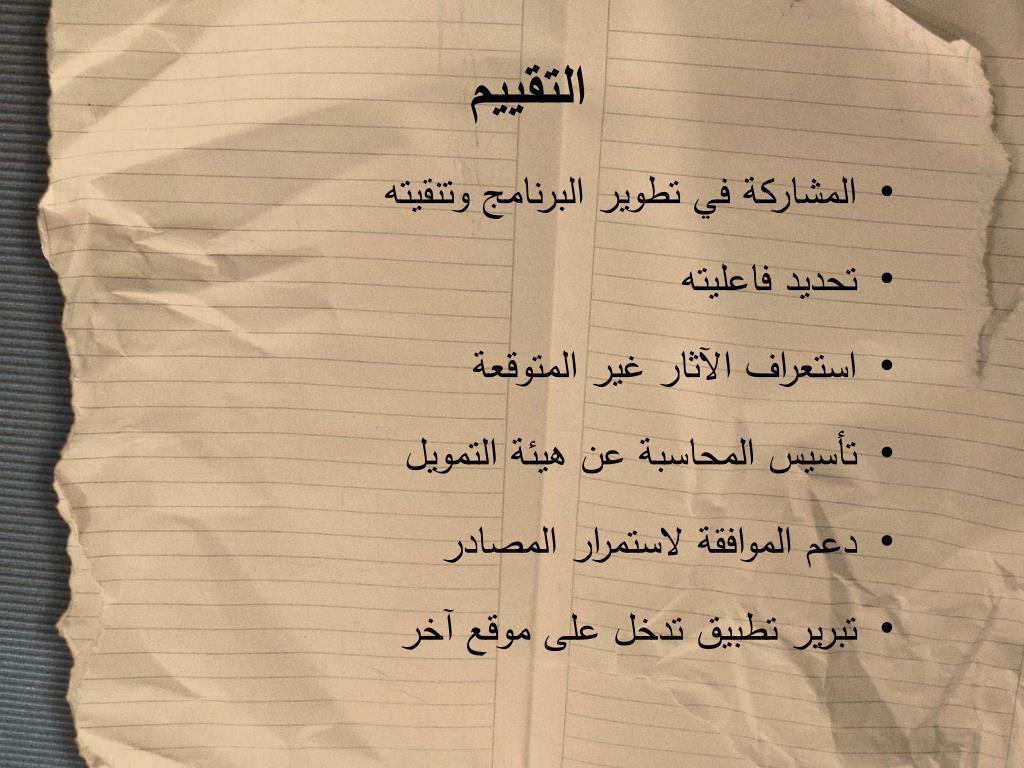 التقييم
• المشاركة في تطوير البرنامج وتنقيته
• تحديد فاعليته
• استعراف الآثار غير المتوقعة
• تأسيس المحاسبة عن هيئة التمويل
• دعم الموافقة لاستمرار المصادر
• تبرير تطبيق تدخل على موقع آخر